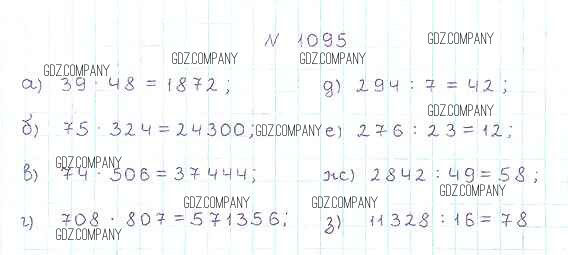 N 1095
GDZ.COMPANY GDZ.COMPANY GDZ.COMPANY
GDZ.COMPANY
а) 39 · 48 = 1872; д) 294 : 7 = 42;
GDZ.COMPANY
б) 75 · 324 = 24300; GDZ.COMPANY е) 276 : 23 = 12;
GDZ.COMPANY
в) 74 · 506 = 37444; ж) 2842 : 49 = 58;
GDZ.COMPANY GDZ.COMPANY GDZ.COMPANY
г) 708 · 807 = 571356; з) 11328 : 16 = 78
GDZ.COMPANY